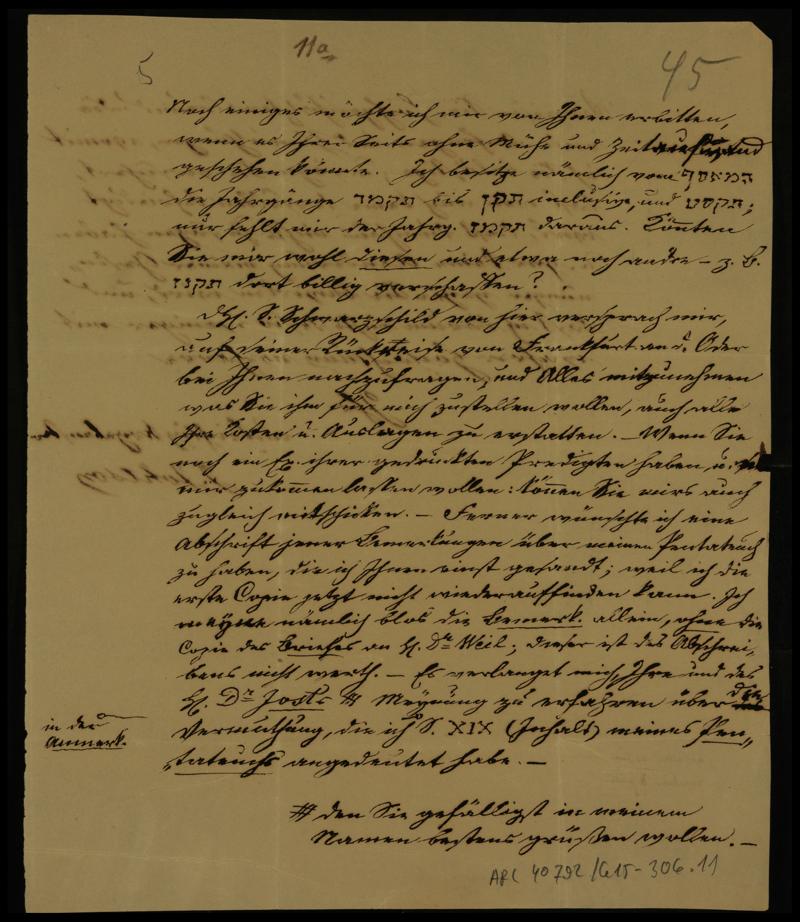 11a
5
45
Noch einiges möchte ich mir von Ihnen erbitten,
wenn es Ihrer Seits ohne Mühe und Zeitaufwand
geschehen könnte. Ich besitze nämlich vom המאסף
die Jahrgänge תקמד bis תקן inclusive, und תקסט;
nur fehlt mir der Jahrg. תקמז daraus. Könnten
Sie mir wohl diesen und etwa noch andre – z. B.
תקנז dort billig verschaffen?
H. S. Schwarzschild von hier versprach mir,
auf seiner Rückreise von Frankfurt an d. Oder
bei Ihnen nachzufragen, und Alles mitzunehmen
was Sie ihm für mich zustellen wollen, auch alle
Ihre Kosten u. Auslagen zu erstatten. – Wenn Sie
noch ein Ex. ihrer gedruckten Predigten haben, u.
mir zukommen lassen wollen: können Sie mirs auch
zugleich mitschicken. – Ferner wünschte ich eine
Abschrift jener Bemerkungen über meinen Pentateuch
zu haben, die ich Ihnen einst gesandt; weil ich die
erste Copie jetzt nicht wiederauffinden kann. Ich
meyne nämlich blos die Bemerk. allein, ohne die
Copie des Briefes an H. Dr Weil; dieser ist des Abschrei-
bens nicht werth. – Es verlanget mich, Ihre und des
H. Dr Josts # Meynung zu erfahren über die
Vermuthung, die ich S. XIX (Inhalt) meines Pen-
tateuchs angedeutet habe. –
in der
Anmerk.
# den Sie gefälligst in meinem
Namen bestens grüßen wollen. –
ARC 40792/G15-306.11